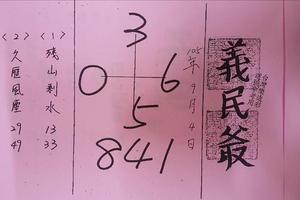 義民爺
105年9月4日
3
0 6
5
841
〈1〉
残山剩水 13 33
〈2〉
久歷風塵 29 49